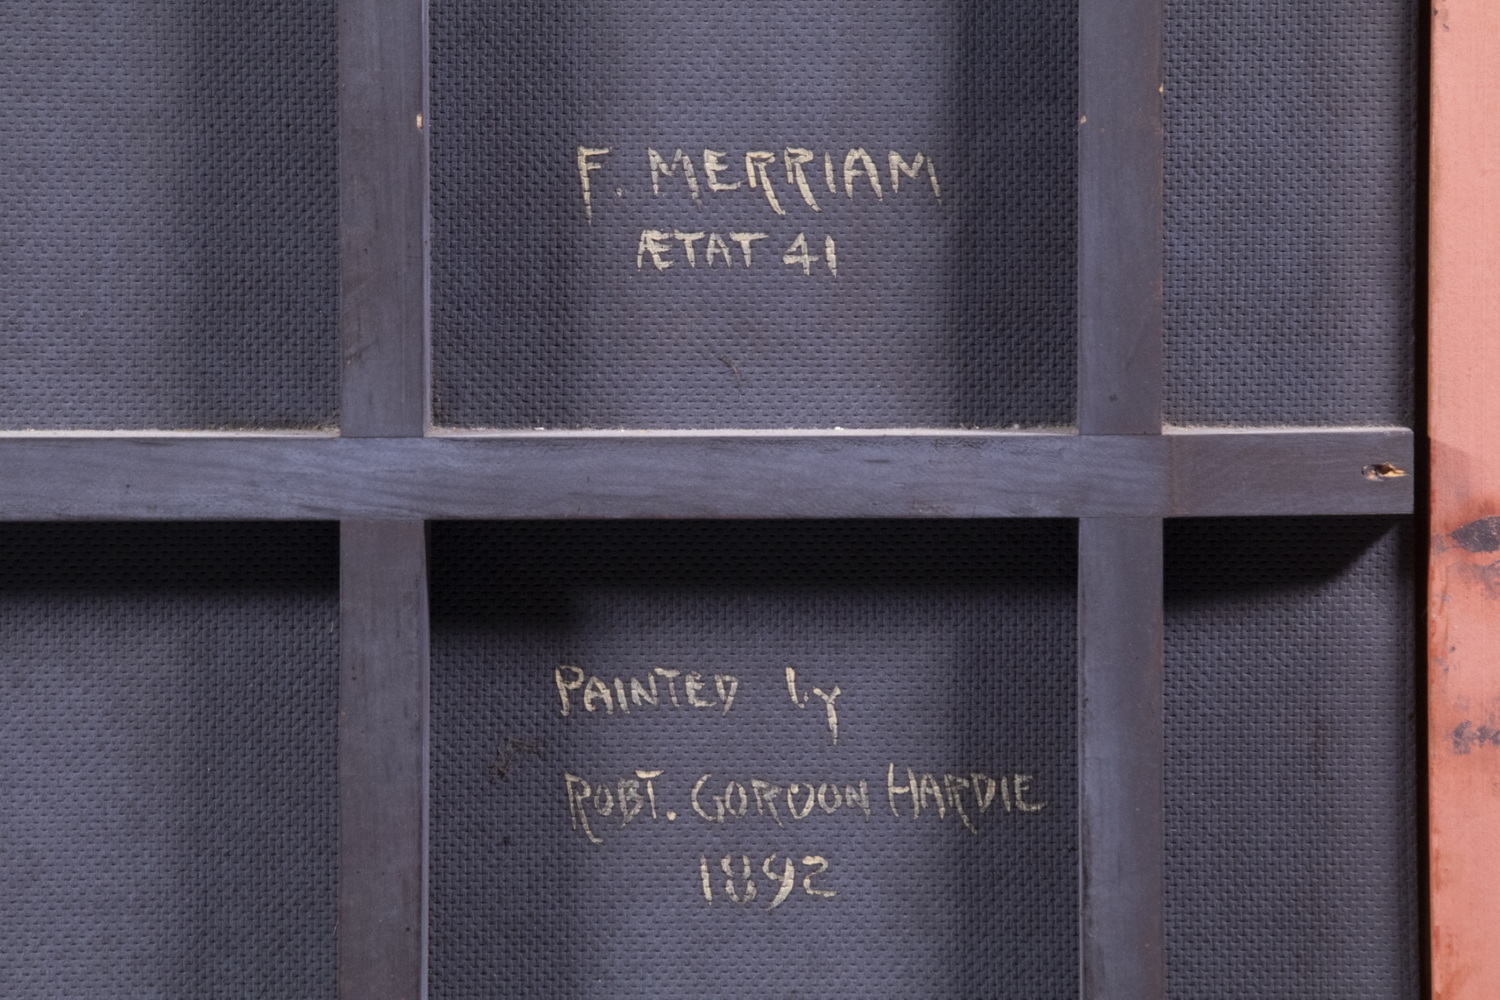 F. MERRIAM
ÆTAT 41
PAINTED by
ROBT. GORDON HARDIE
1892